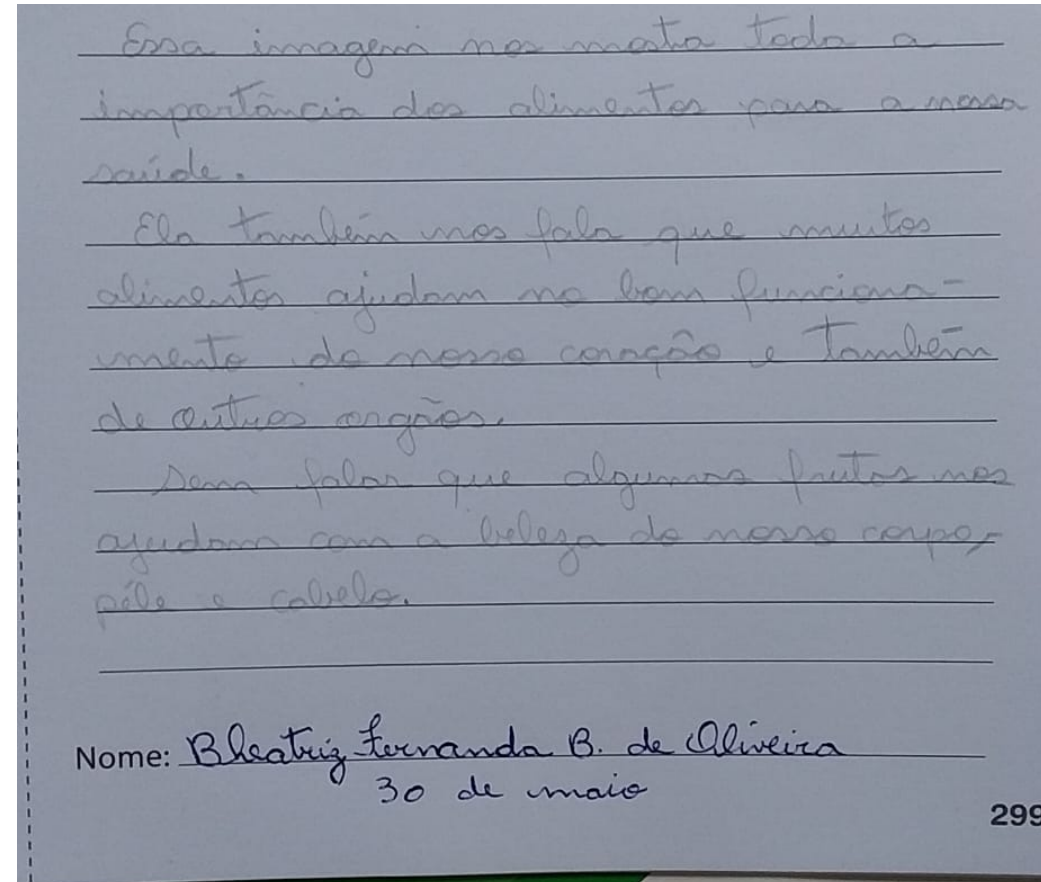 Essa imagem nos mostra toda a
importância dos alimentos para a nossa
saúde.
Ela também nos fala que muitos
alimentos ajudam no bom funciona-
mento do nosso coração e também
de outros orgãos.
Sem falar que algumas frutas nos
ajudam com a beleza do nosso corpo,
péle e cabelo.
Nome: Bheatriz Fernanda B. de Oliveira
30 de maio
299